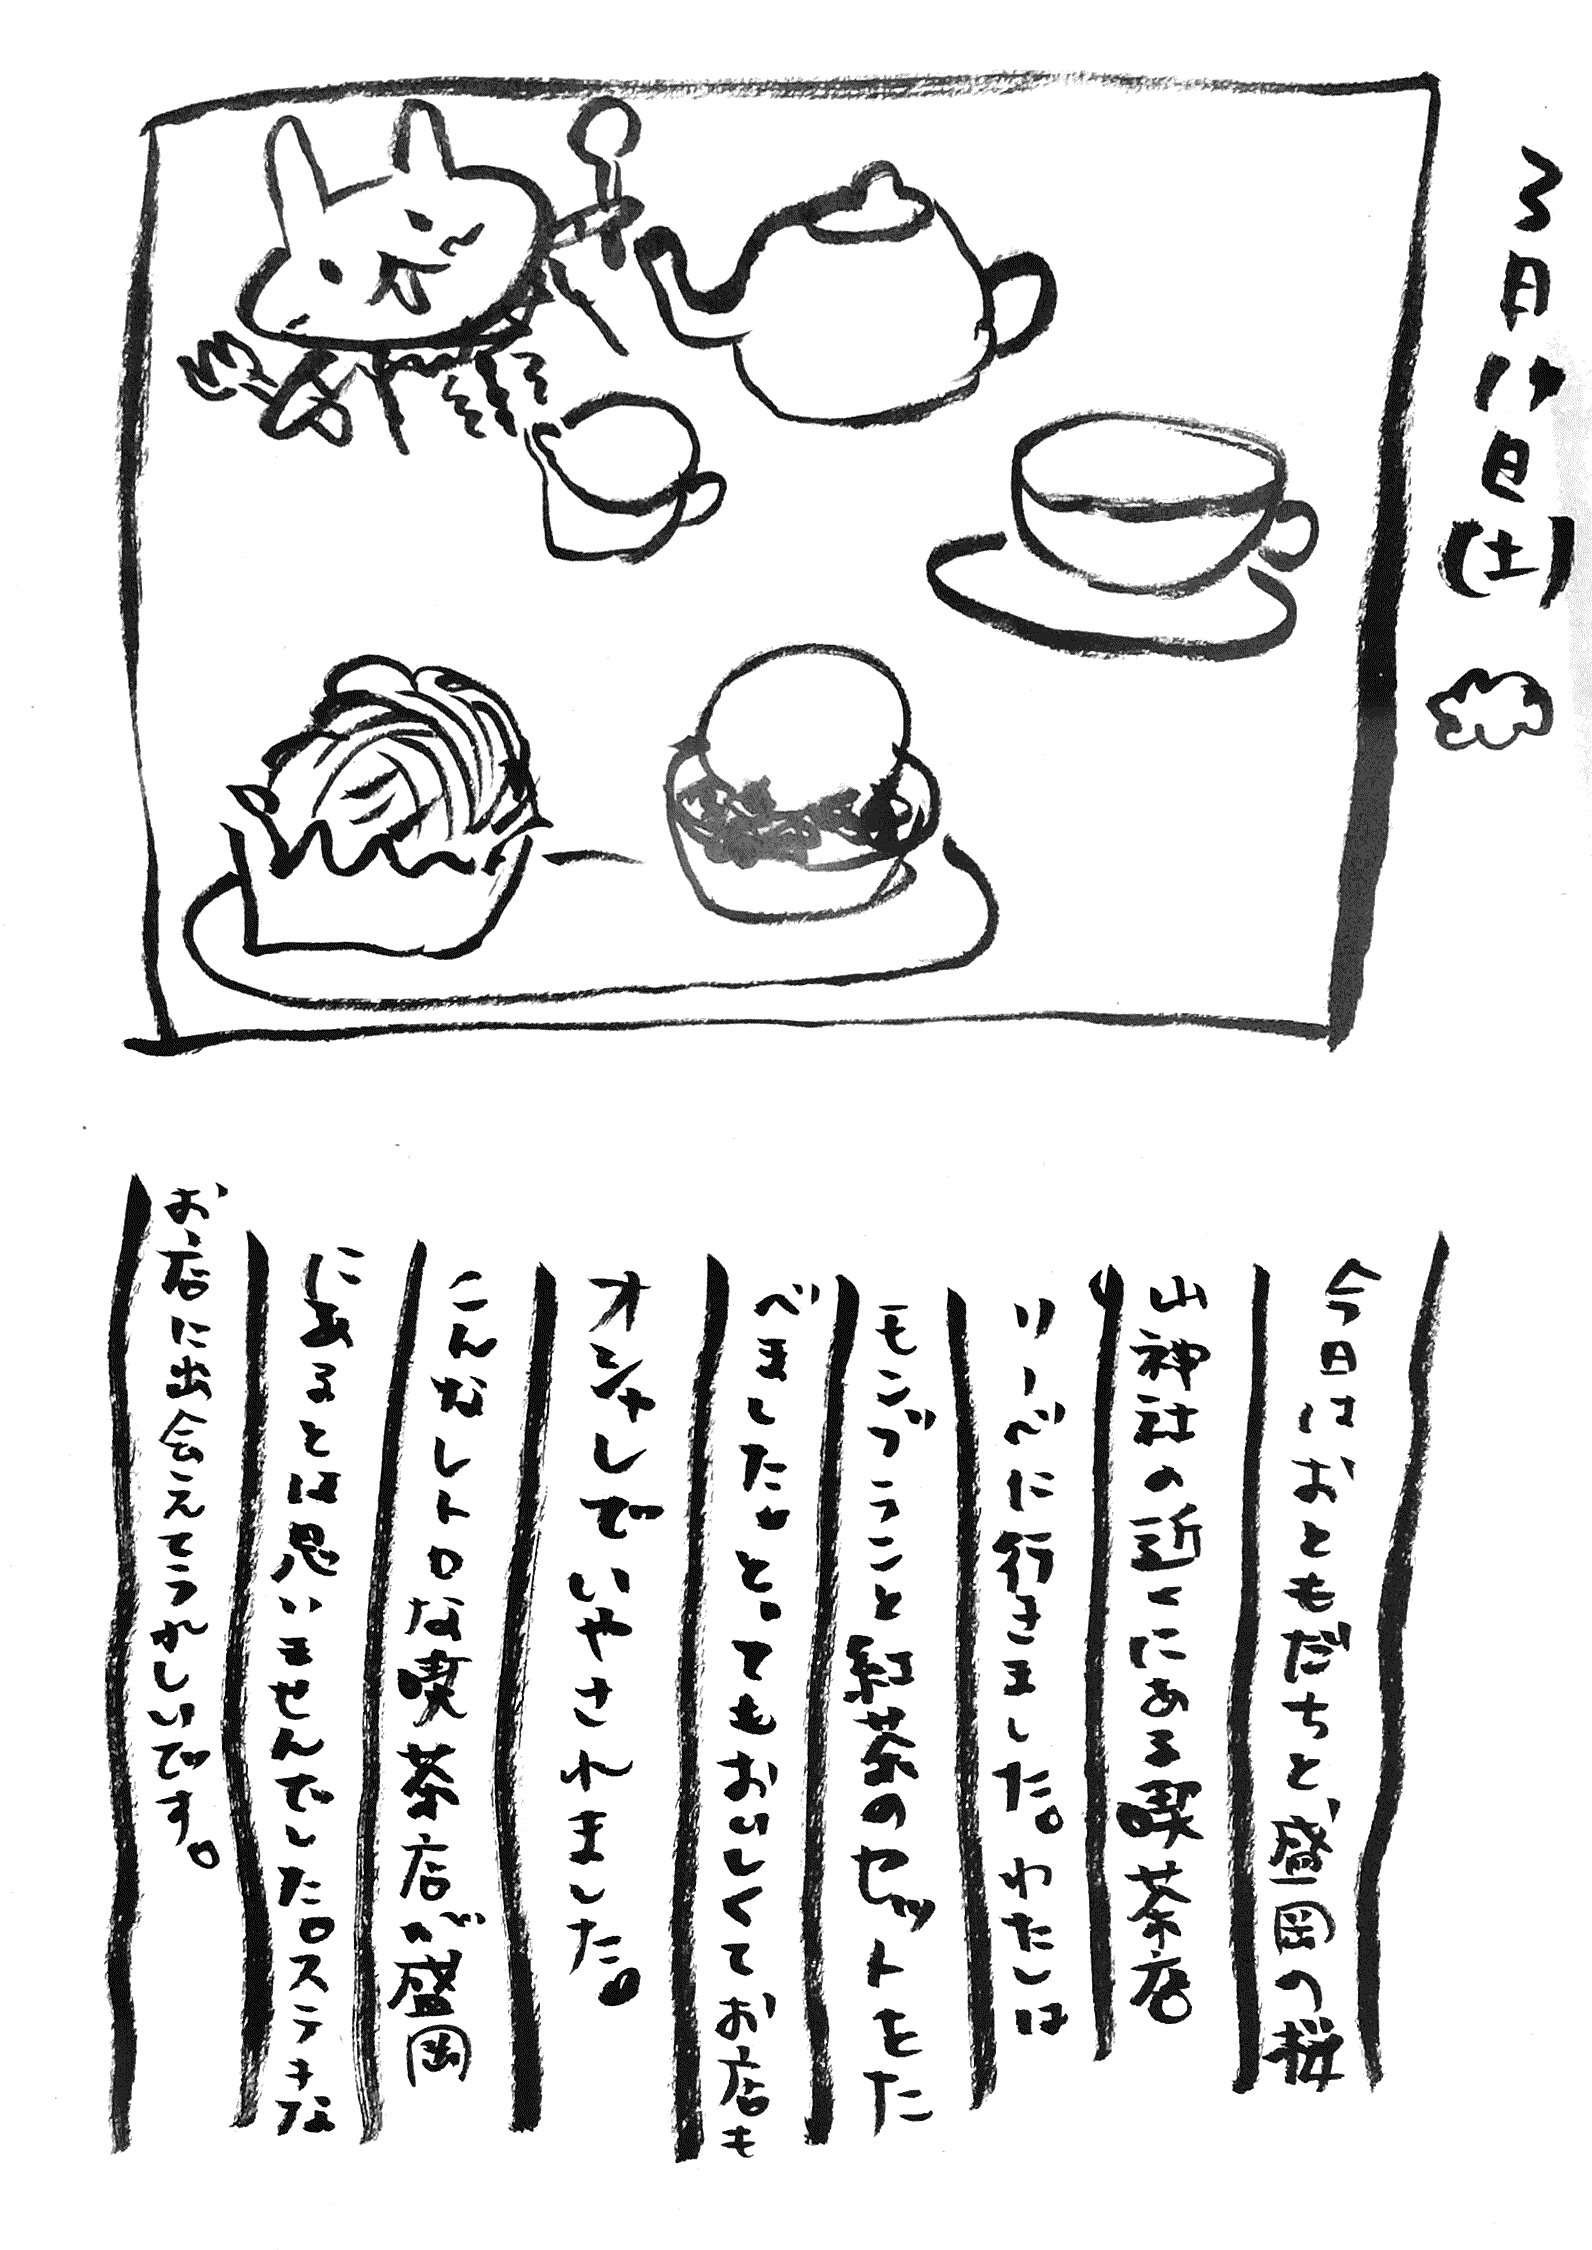 3月14日(土)
今日はおともだちと、盛岡の桜
山神社の近くにある喫茶店
リーベに行きました。わたしは
モンブランと紅茶のセットをた
べました。とってもおいしくてお店も
オシャレでいやされました。
こんなレトロな喫茶店が盛岡
にあるとは思いませんでした。ステキな
お店に出会えてうれしいです。